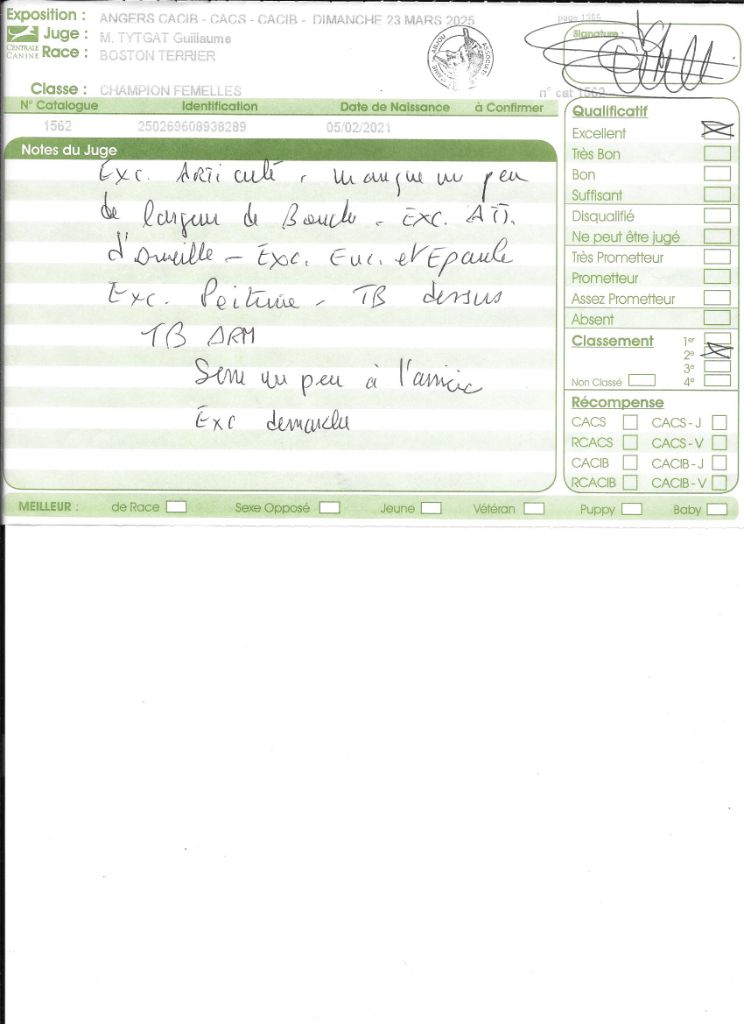 Exposition : ANGERS CACIB - CACS - CACIB - DIMANCHE 23 MARS 2025
page 1366
Juge : M. TYTGAT Guillaume
Signature :
CENTRALE CANINE
Race : BOSTON TERRIER
Classe : CHAMPION FEMELLES
n° cat 1562
N° Catalogue Identification Date de Naissance à Confirmer
1562 250269608938289 05/02/2021
Notes du Juge
Exc. ARTiculé, manque un peu
de largeur de Bouche - Exc. ATT.
d'Oreille - Exc. Enc. et Epaule
Exc. Poitrine - TB dessus
TB ARM
Serre un peu à l'arrière
Exc demarche
Qualificatif
Excellent
Très Bon
Bon
Suffisant
Disqualifié
Ne peut être jugé
Très Prometteur
Prometteur
Assez Prometteur
Absent
Classement 1er
2e
3e
Non Classé 4e
Récompense
CACS CACS - J
RCACS CACS - V
CACIB CACIB - J
RCACIB CACIB - V
MEILLEUR : de Race Sexe Opposé Jeune Vétéran Puppy Baby